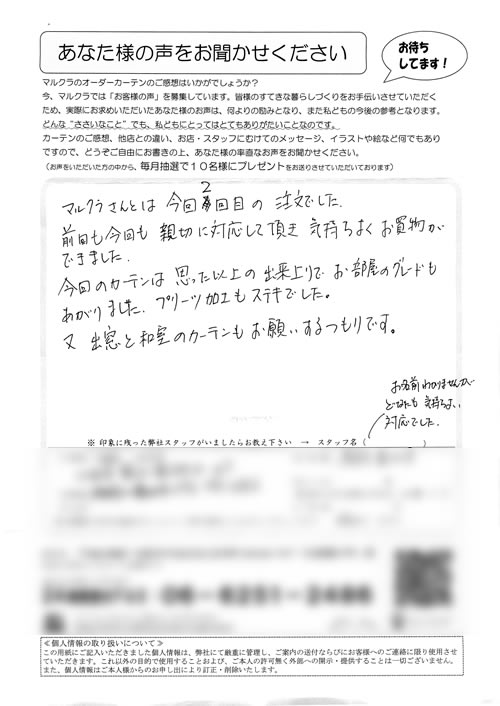 あなた様の声をお聞かせください
お待ち
してます！
マルクラのオーダーカーテンのご感想はいかがでしょうか？
今、マルクラでは「お客様の声」を募集しています。皆様のすてきな暮らしづくりをお手伝いさせていただく
ため、実際にお求めいただいたあなた様のお声は、何よりの励みとなり、また私どもの今後の参考となります。
どんな“ささいなこと”でも、私どもにとってはとてもありがたいことなのです。
カーテンのご感想、他店との違い、お店・スタッフにむけてのメッセージ、イラストや絵など何でもあり
ですので、どうぞご自由にお書きの上、あなた様の率直なお声をお聞かせください。
(お声をいただいた方の中から、毎月抽選で１０名様にプレゼントをお送りさせていただいております)
マルクラさんとは 今回2回目の 注文でした。
前回も今回も 親切に対応して頂き 気持ちよく お買物が
できました。
今回のカーテンは 思った以上の 出来上りで お部屋のグレードも
あがりました。プリーツ加工もステキでした。
又 出窓と和室のカーテンも お願いするつもりです。
お名前わかりませんが
どなたも 気持ちよい
対応でした。
※ 印象に残った弊社スタッフがいましたらお教え下さい → スタッフ名（ ）
06-6251-2486
≪個人情報の取り扱いについて≫
この用紙にご記入いただきました個人情報は、弊社にて厳重に管理し、ご案内の送付ならびにお客様へのご連絡に限り使用させ
ていただきます。これ以外の目的で使用することおよび、ご本人の許可無く外部への開示・提供することは一切ございません。
また、個人情報はご本人様からのお申し出により訂正・削除いたします。